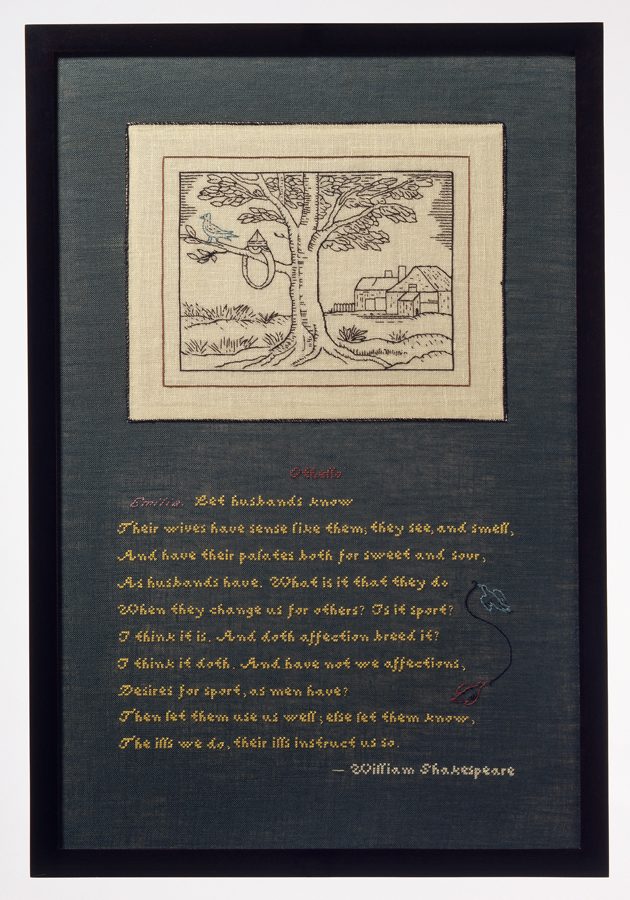 Othello
Emilia. Let husbands know
Their wives have sense like them; they see, and smell,
And have their palates both for sweet and sour,
As husbands have. What is it that they do
When they change us for others? Is it sport?
I think it is. And doth affection breed it?
I think it doth. And have not we affections,
Desires for sport, as men have?
Then let them use us well; else let them know,
The ills we do, their ills instruct us so.
— William Shakespeare